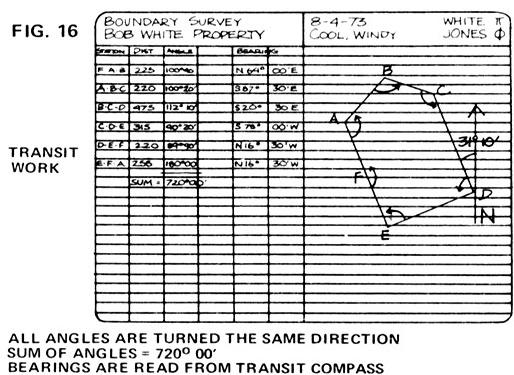 FIG. 16
BOUNDARY SURVEY 8-4-73 WHITE π
BOB WHITE PROPERTY COOL, WINDY JONES ϕ
STATION DIST ANGLE BEARING
F A B 225 N 64° 00'E
A-B-C 220 S 87° 30'E
B-C-D 475 112° 10' S 20° 30'E
C-D-E 315 90°20' S 78° 00'W
D-E-F 220 N 16° 30'W
E-F-A 258 180°00' N 16° 30'W
SUM = 720°00'
B
C
A
31° 10'
F
D
N
E
TRANSIT
WORK
ALL ANGLES ARE TURNED THE SAME DIRECTION
SUM OF ANGLES = 720° 00'
BEARINGS ARE READ FROM TRANSIT COMPASS